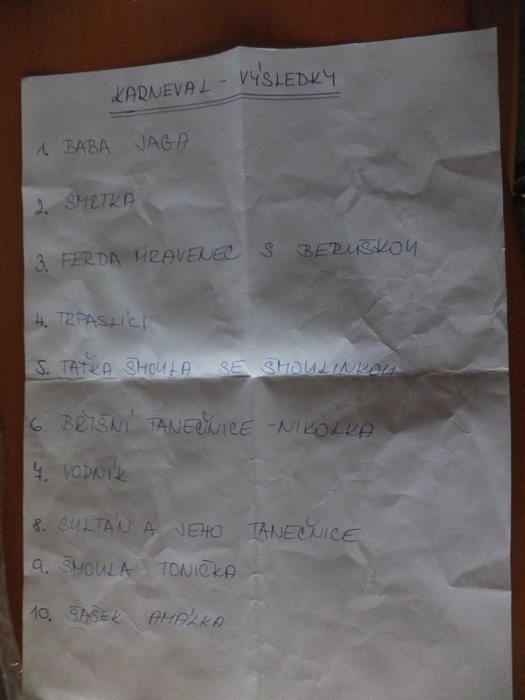 KARNEVAL - VÝSLEDKY
1. BABA JAGA
2. SMRTKA
3. FERDA MRAVENEC S BERUŠKOU
4. TRPASLÍCI
5. TAŤKA ŠMOULA SE ŠMOULINKOU
6. BŘIŠNÍ TANEČNICE - NIKOLKA
7. VODNÍK
8. SULTÁN A JEHO TANEČNICE
9. ŠMOULA TONIČKA
10. ŠAŠEK AMÁLKA